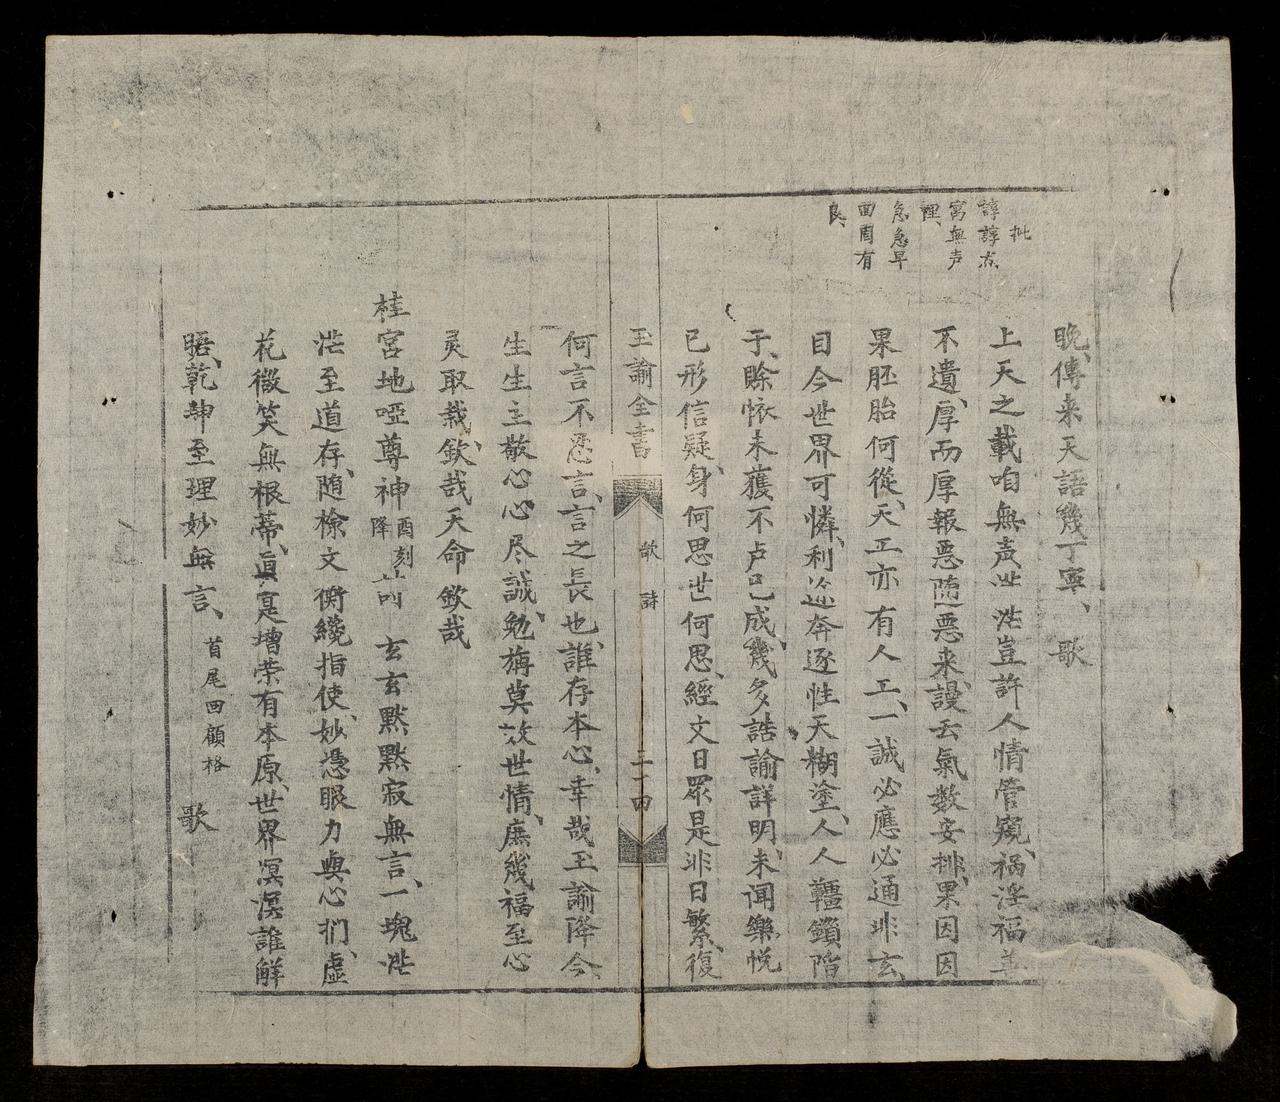 批
諄諄点
宮無声
裡、
急急早
囬酉有
良、
晚、傳来天語幾丁寧、 歌
上天之載咱無声世茫豈許人情管窺、禍淫福善
不遺、厚而厚報惡随惡来、謾云氣数安排、果因因
果胚胎何從、天工亦有人工、一誠必應必通非玄、
目今世界可憐、利途奔逐性天糊塗、人人韁鎖陷
于、賒恢未獲、不占已成、幾多誥諭詳明、未闻樂悦
已形信疑、身何思世何思、經文日眾是非日繁、復
玉諭全書
歌 詩
三十四
何言不慿言、言之長也、誰存本心、幸哉玉諭降今、
生生主敬心心尽誠、勉旃莫效世情、庶幾福至心
灵取裁、欽哉天命欽哉
桂宮地啞尊神 酉刻降 玄玄黙黙寂無言、一塊茫
茫至道存、随檢文衡纔指使、妙慿眼力與心捫、虛
花微笑無根蒂、眞寔增荣有本原、世界溟溟誰解
晤、乾坤至理妙無言、 首尾囬顧格 歌